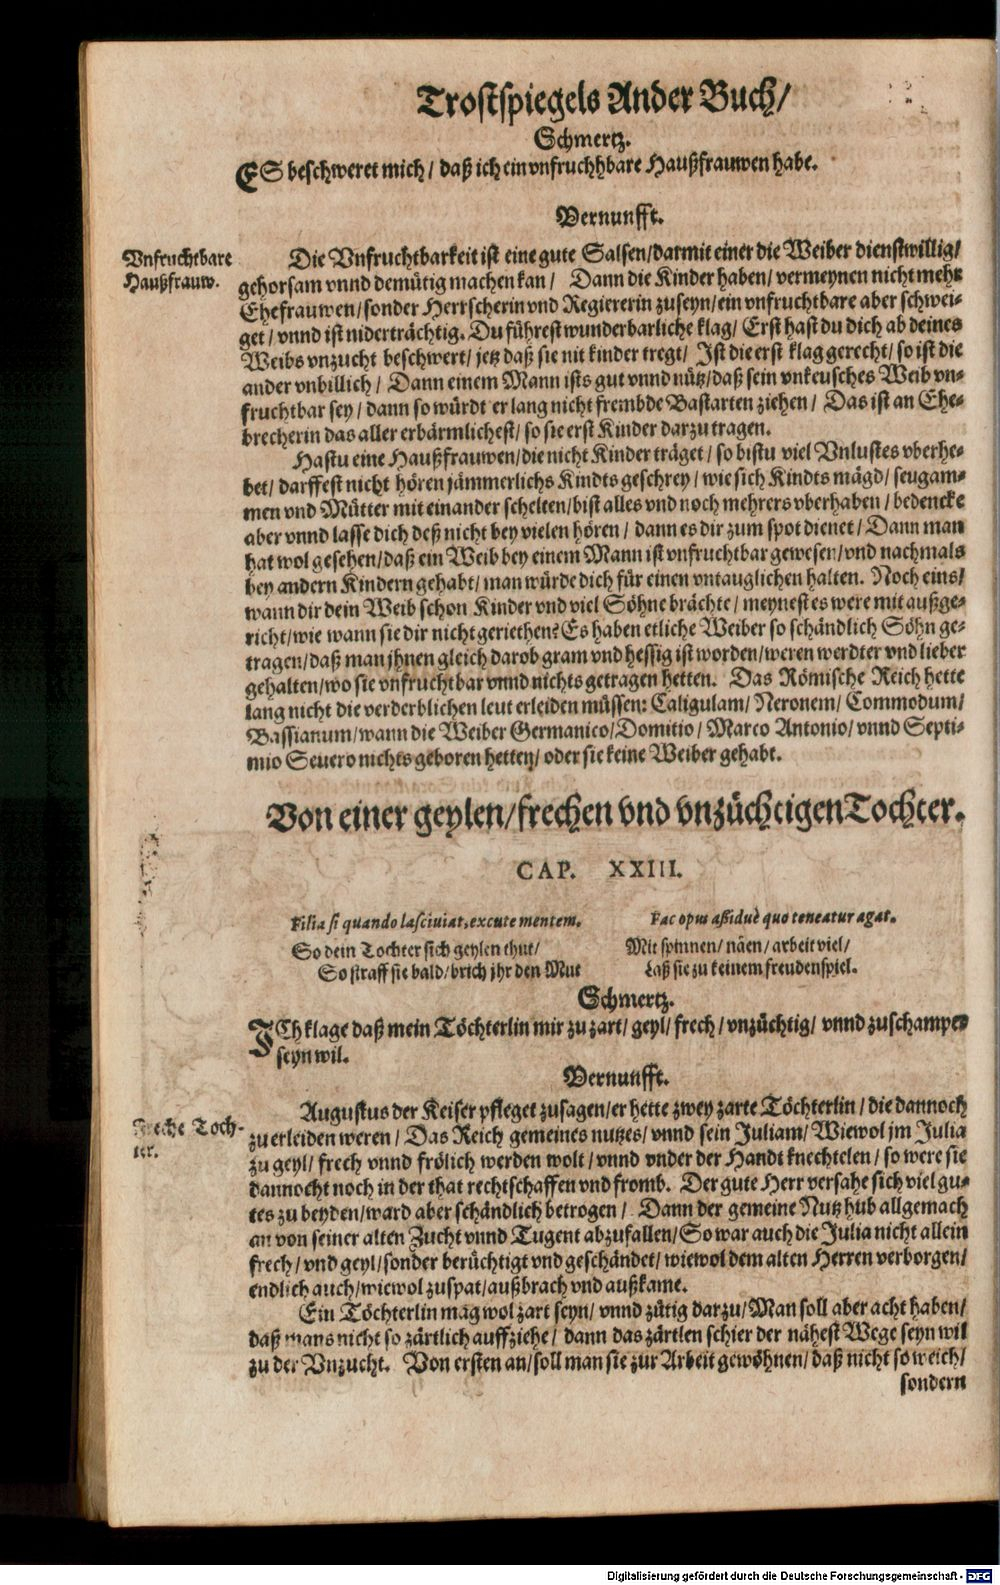 Trostspiegels Ander Buch/
Schmertz.
ES beschweret mich/ daß ich ein vnfruchhbare Haußfrauwen habe.
Vernunfft.
Vnfruchtbare
Haußfrauw.
Die Vnfruchtbarkeit ist eine gute Salsen/darmit einer die Weiber dienstwillig/
gehorsam vnnd demütig machen kan/ Dann die Kinder haben/ vermeynen nicht mehr
Ehefrauwen/sonder Herrscherin vnd Regiererin zuseyn/ein vnfruchtbare aber schwei-
get/ vnnd ist niderträchtig. Du führest wunderbarliche klag/ Erst hast du dich ab deines
Weibs vnzucht beschwert/ jetz daß sie nit kinder tregt/ Ist die erst klag gerecht/ so ist die
ander vnbillich/ Dann einem Mann ists gut vnnd nütz/daß sein vnkeusches Weib vn-
fruchtbar sey/ dann so würdt er lang nicht frembde Bastarten ziehen/ Das ist an Ehe-
brecherin das aller erbärmlichest/ so sie erst Kinder darzu tragen.
Hastu eine Haußfrauwen/die nicht Kinder träget/ so bistu viel Vnlustes vberhe-
bet/ darffest nicht hören jämmerlichs Kindts geschrey/ wie sich Kindts mägd/ seugam-
men vnd Mütter mit einander schelten/bist alles vnd noch mehrers vberhaben/ bedencke
aber vnnd lasse dich deß nicht bey vielen hören/ dann es dir zum spot dienet/ Dann man
hat wol gesehen/daß ein Weib bey einem Mann ist vnfruchtbar gewesen/vnd nachmals
bey andern Kindern gehabt/man würde dich für einen vntauglichen halten. Noch eins/
wann dir dein Weib schon Kinder vnd viel Söhne brächte/ meynest es were mit außge-
richt/wie wann sie dir nicht geriethen? Es haben etliche Weiber so schändlich Söhn ge-
tragen/daß man jhnen gleich darob gram vnd hessig ist worden/weren werdter vnd lieber
gehalten/wo sie vnfruchtbar vnnd nichts getragen hetten. Das Römische Reich hette
lang nicht die verderblichen leut erleiden müssen: Caligulam/ Neronem/ Commodum/
Bassianum/wann die Weiber Germanico/Domitio/ Marco Antonio/ vnnd Septi-
mio Seuero nichts geboren hetten/ oder sie keine Weiber gehabt.
Von einer geylen/frechen vnd vnzüchtigen Tochter.
CAP. XXIII.
Filia si quando lasciuiat, excute mentem.
Fac opus aßiduè quo teneatur agat.
So dein Tochter sich geylen thut/
So straff sie bald/brich jhr den Mut
Mit spinnen/ näen/ arbeit viel/
Laß sie zu keinem freudenspiel.
Schmertz.
ICh klage daß mein Töchterlin mir zu zart/ geyl/ frech/ vnzüchtig/ vnnd zuschamper
seyn wil.
Vernunfft.
Freche Toch-
ter.
Augustus der Keiser pfleget zusagen/er hette zwey zarte Töchterlin/ die dannoch
zu erleiden weren/ Das Reich gemeines nutzes/ vnnd sein Juliam/ Wiewol jm Julia
zu geyl/ frech vnnd frölich werden wolt/ vnnd vnder der Handt knechtelen/ so were sie
dannocht noch in der that rechtschaffen vnd fromb. Der gute Herr versahe sich viel gu-
tes zu beyden/ward aber schändlich betrogen/ Dann der gemeine Nutz hub allgemach
an von seiner alten Zucht vnnd Tugent abzufallen/So war auch die Julia nicht allein
frech/ vnd geyl/sonder berüchtigt vnd geschändet/ wiewol dem alten Herren verborgen/
endlich auch/wiewol zuspat/außbrach vnd außkame.
Ein Töchterlin mag wol zart seyn/ vnnd zütig darzu/Man soll aber acht haben/
daß mans nicht so zärtlich auffziehe/ dann das zärtlen schier der nähest Wege seyn wil
zu der Vnzucht. Von ersten an/soll man sie zur Arbeit gewöhnen/daß nicht so weich/
sondern
Digitalisierung gefördert durch die Deutsche Forschungsgemeinschaft - DFG